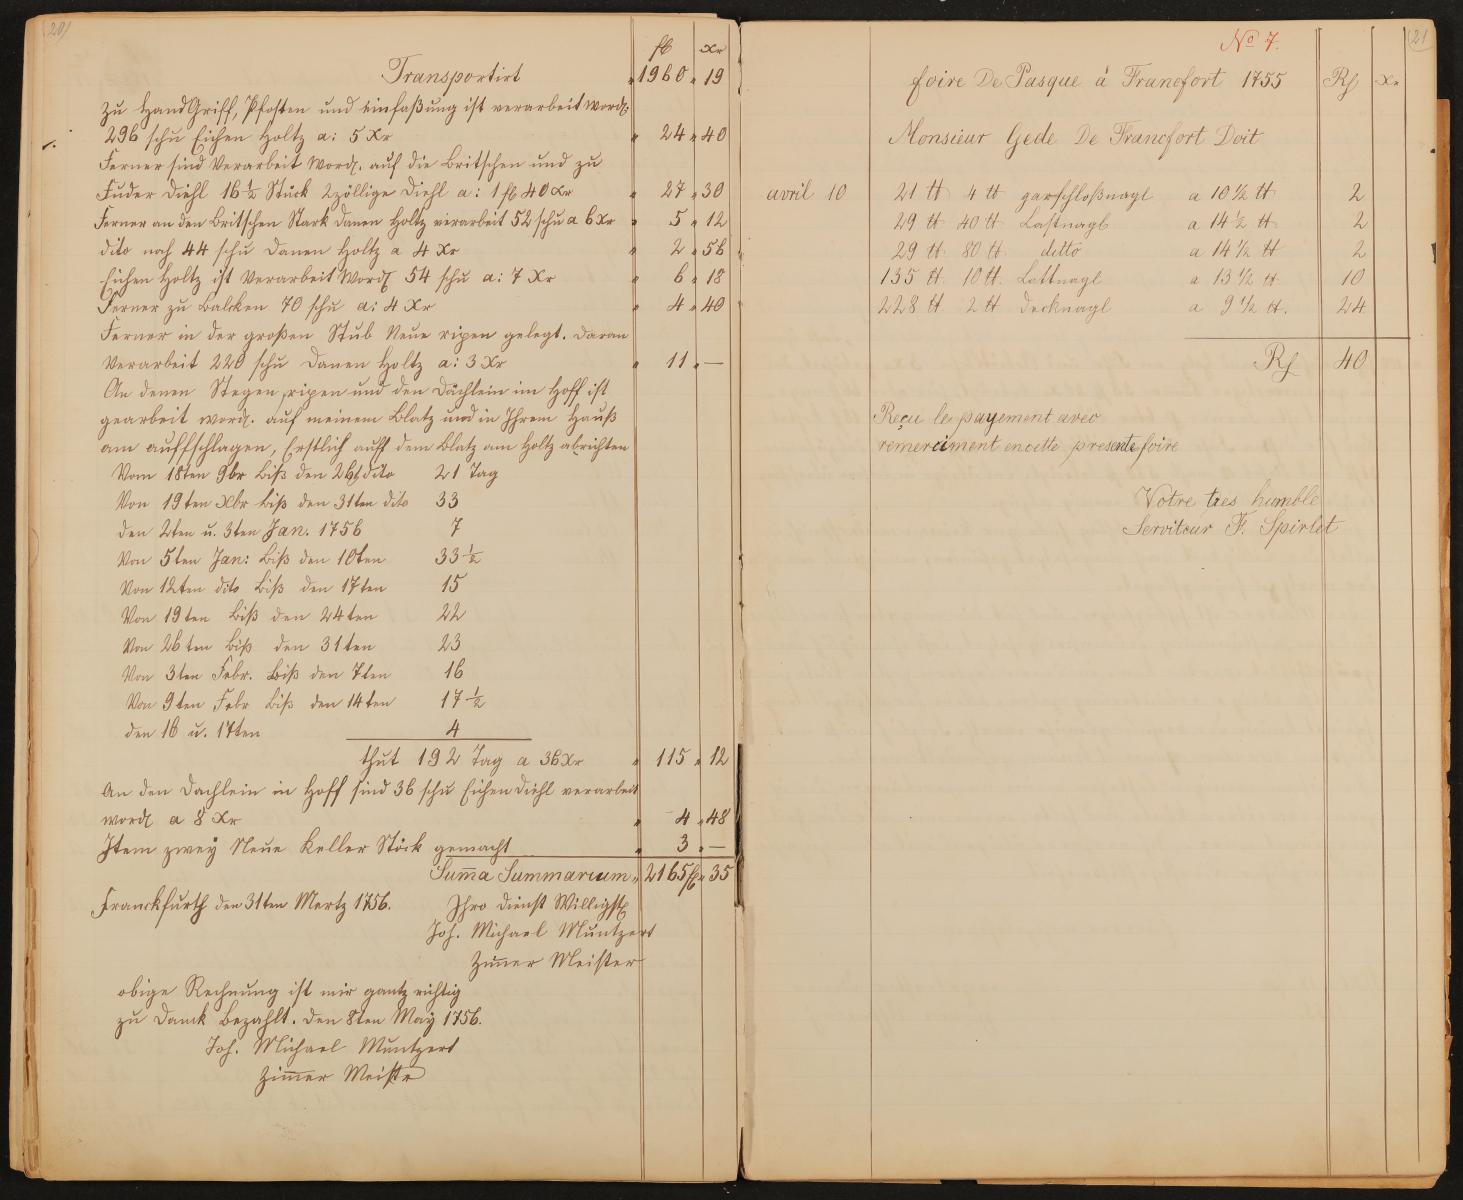 20)
fl Xr
Transportirt " 1960 " 19
zu HandGriff, Pfosten und einfaßung ist verarbeit word.
296 schu Eichen Holtz a: 5 Xr " 24 " 40
Ferner sind Verarbeit Word. auf die Britschen und zu
Fuder Diehl 16 1/2 Stück 2zöllige Diehl a: 1 fl 40 Xr " 27 " 30
Ferner an den Britschen Stark Danen Holtz verarbeit 52 schu a 6 Xr " 5 " 12
dito noch 44 schu Danen Holtz a 4 Xr " 2 " 56
Eichen Holtz ist Verarbeit Word. 54 schu a: 7 Xr " 6 " 18
Ferner zu Balcken 70 schu a: 4 Xr " 4 " 40
Ferner in der großen Stub Neue ripen gelegt. daran
Verarbeit 220 schu Danen Holtz a: 3 Xr " 11 " —
An denen Stegen, ripen und den Dächlein im Hoff ist
gearbeit word. auf meinem Blatz und in Ihrem Hauß
am auffschlagen, Erstlich auff dem Blatz am Holtz abrichten
Vom 18ten 9br Biß den 26t dito 21 Tag
Von 19ten Xbr biß den 31ten dito 33
den 2ten u. 3ten Jan. 1756 7
Von 5ten Jan: Biß den 10ten 33 1/2
Von 12ten dito Biß den 17ten 15
Von 19ten Biß den 24ten 22
Von 26ten Biß den 31ten 23
Von 3ten Febr. Biß den 7ten 16
Von 9ten Febr Biß den 14ten 17 1/2
den 16 u. 17ten 4
thut 192 Tag a 36 Xr " 115 " 12
An den Dachlein in Hoff sind 36 schu Eichen Diehl verarbeit
word. a 8 Xr " 4 " 48
Item zwey Neue Keller Stöck gemacht " 3 " —
Summa Summarium " 2165 fl " 35
Franckfurth den 31ten Mertz 1756. Ihro dienst Willigst
Joh. Michael Muntzert
Zimer Meister
obige Rechnung ist mir gantz richtig
zu Danck Bezahlt. den 8ten May 1756.
Joh. Michael Muntzert
Zimer Meister
No 7. 21
foire De Pasque á Francfort 1755 Rf Xr
Monsieur Gede De Francfort Doit
avril 10 21 tt 4 tt garschloßnagl a 10 1/2 tt 2
29 tt 40 tt Lastnagl a 14 1/2 tt 2
29 tt 80 tt ditto a 14 1/2 tt 2
135 tt 10 tt. Lattnagl a 13 1/2 tt 10
228 tt 2 tt Decknagl a 9 1/2 tt. 24
Rf 40
Reçu le payement avec
remerciment en cette presente foire
Votre tres humble
Serviteur F. Spirlet